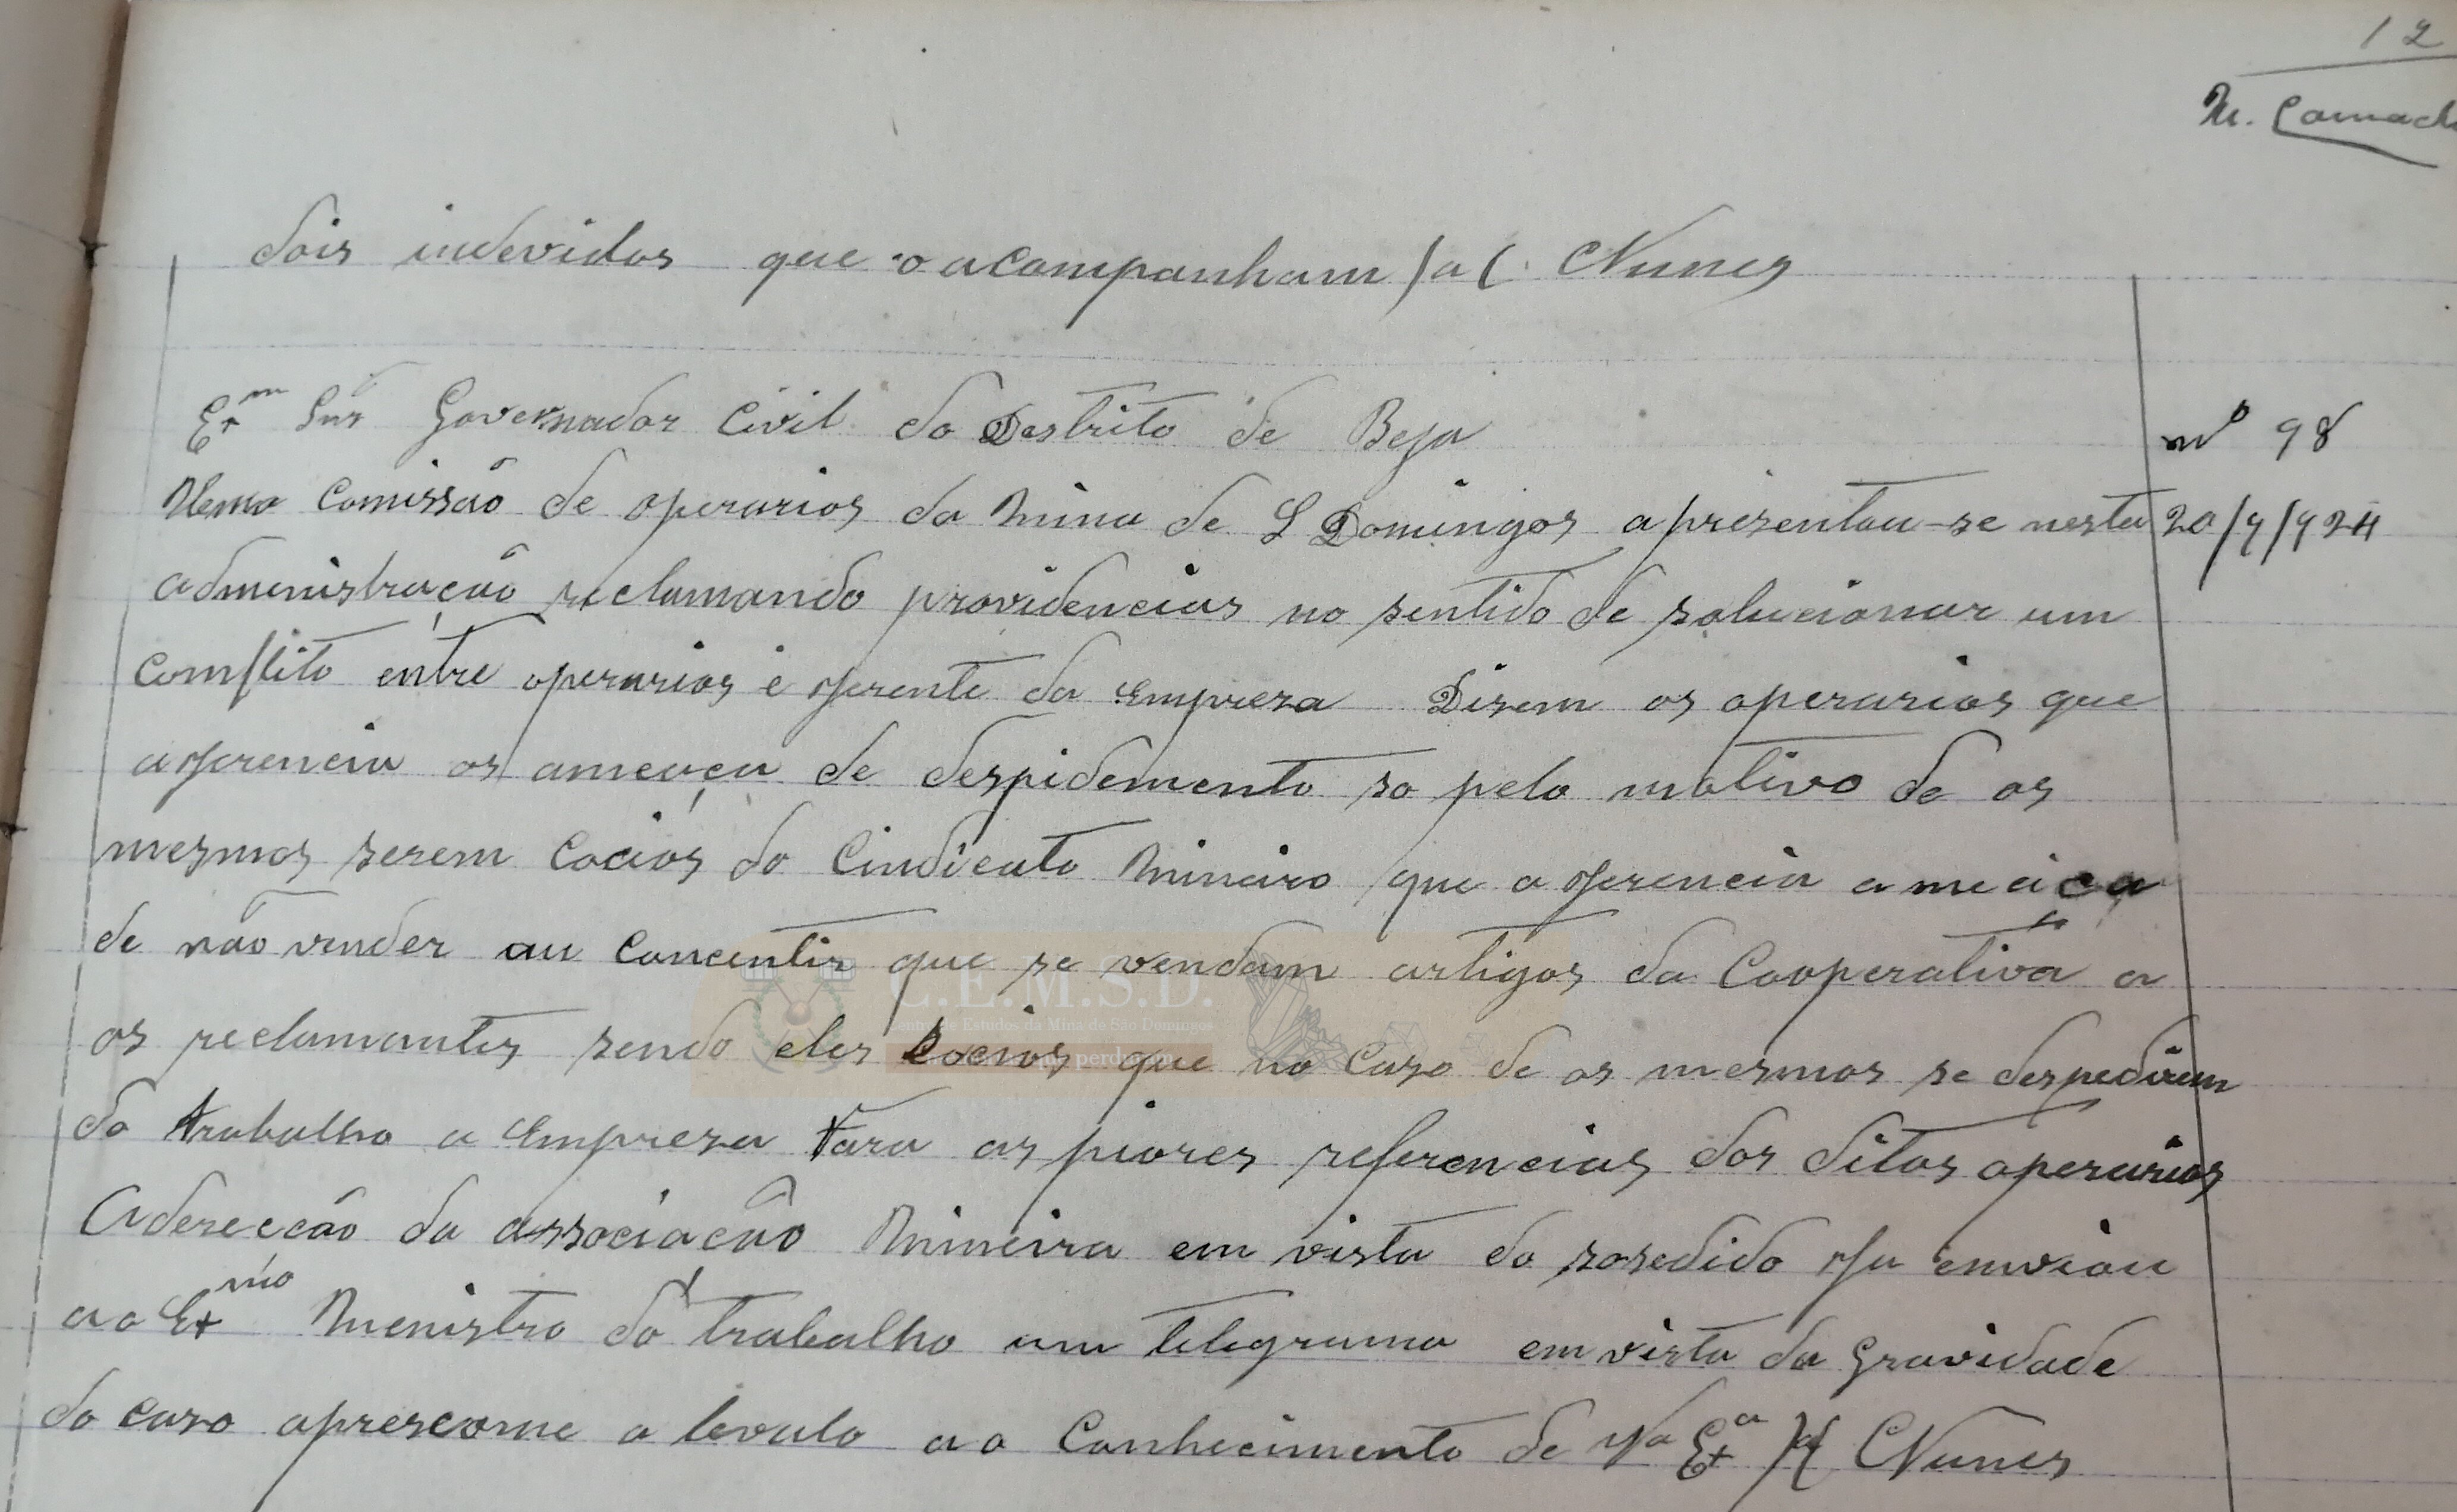 12
M. Camach
dois indevidos que o acompanham /a( CNunes
Exm Snr Governador Civil do Destrito de Beja
nº 98
Uma Comissão de operarios da Mina de S Domingos aprizentou-se nesta
20/9/924
administração reclamando providencias no sentido de solucionar um
Comflito entre operarios e gerente da Empreza Dizem os operarios que
a gerencia os ameaça de despidemento so pelo motivo de os
mesmos serem Cocios do Cindicato Mineiro que a gerencia ameaça
de não vender au Concentir que se vendam artigos da Cooperativa a
os reclamantes sendo eles Socios que no Cazo de os mesmos se despedirem
do trabalho a Empreza Fara as piores referencias dos ditos operarios
A derecção da associação Mineira em vista do sosedido ja enviou
ao Exmo Menistro do trabalho um telegrama em vista da Gravidade
do cazo aprescome a levalo ao Conhecimento de Va Exa /a( CNunes
C.E.M.S.D.
Centro de Estudos da Mina de São Domingos
perduram